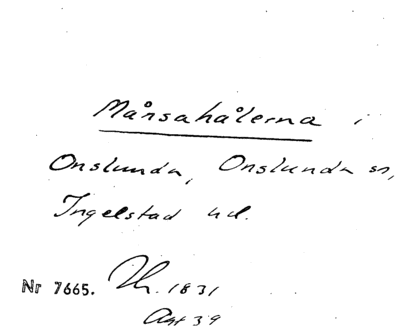 Månsahålerna i
Onslunda, Onslunda sn,
Ingelstad hd.
Nr 7665. Th. 1831